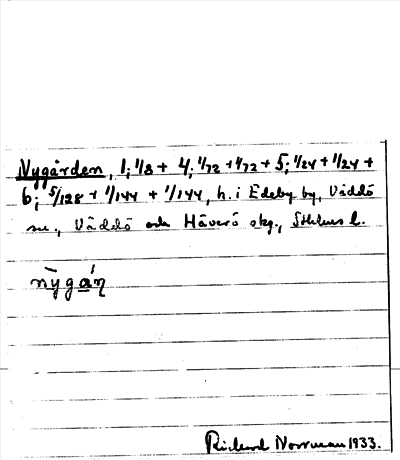 Nygården, 1; 1/8 + 4; 1/72 + 1/72 + 5; 1/24 + 1/24 +
6; 5/128 + 1/144 + 1/144, h. i Edeby by, Väddö
sn., Väddö och Häverö skg., Sthlms l.
nỳgáṇ
Rickard Norrman 1933.